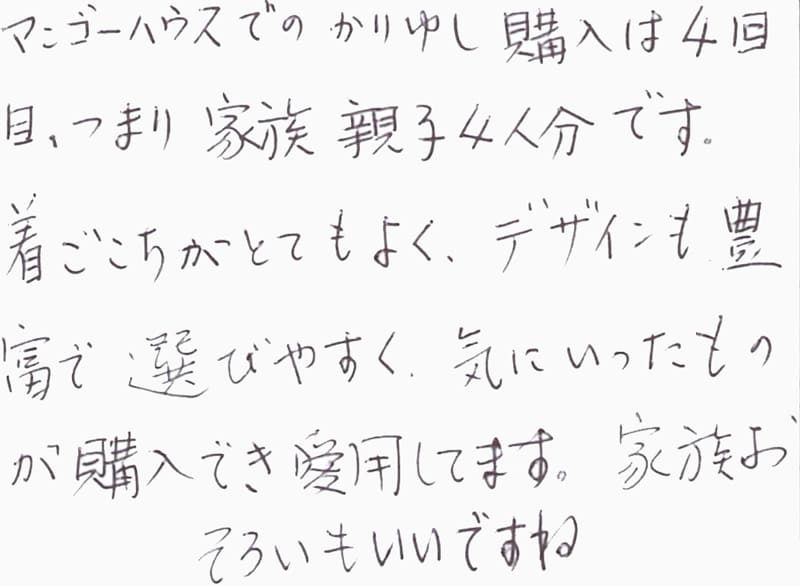 マンゴーハウスでの かりゆし 購入は4回
目、つまり 家族 親子4人分です。
着ごこちがとてもよく、デザインも豊
富で 選びやすく、気にいったもの
が購入でき愛用してます。家族お
そろいもいいですね